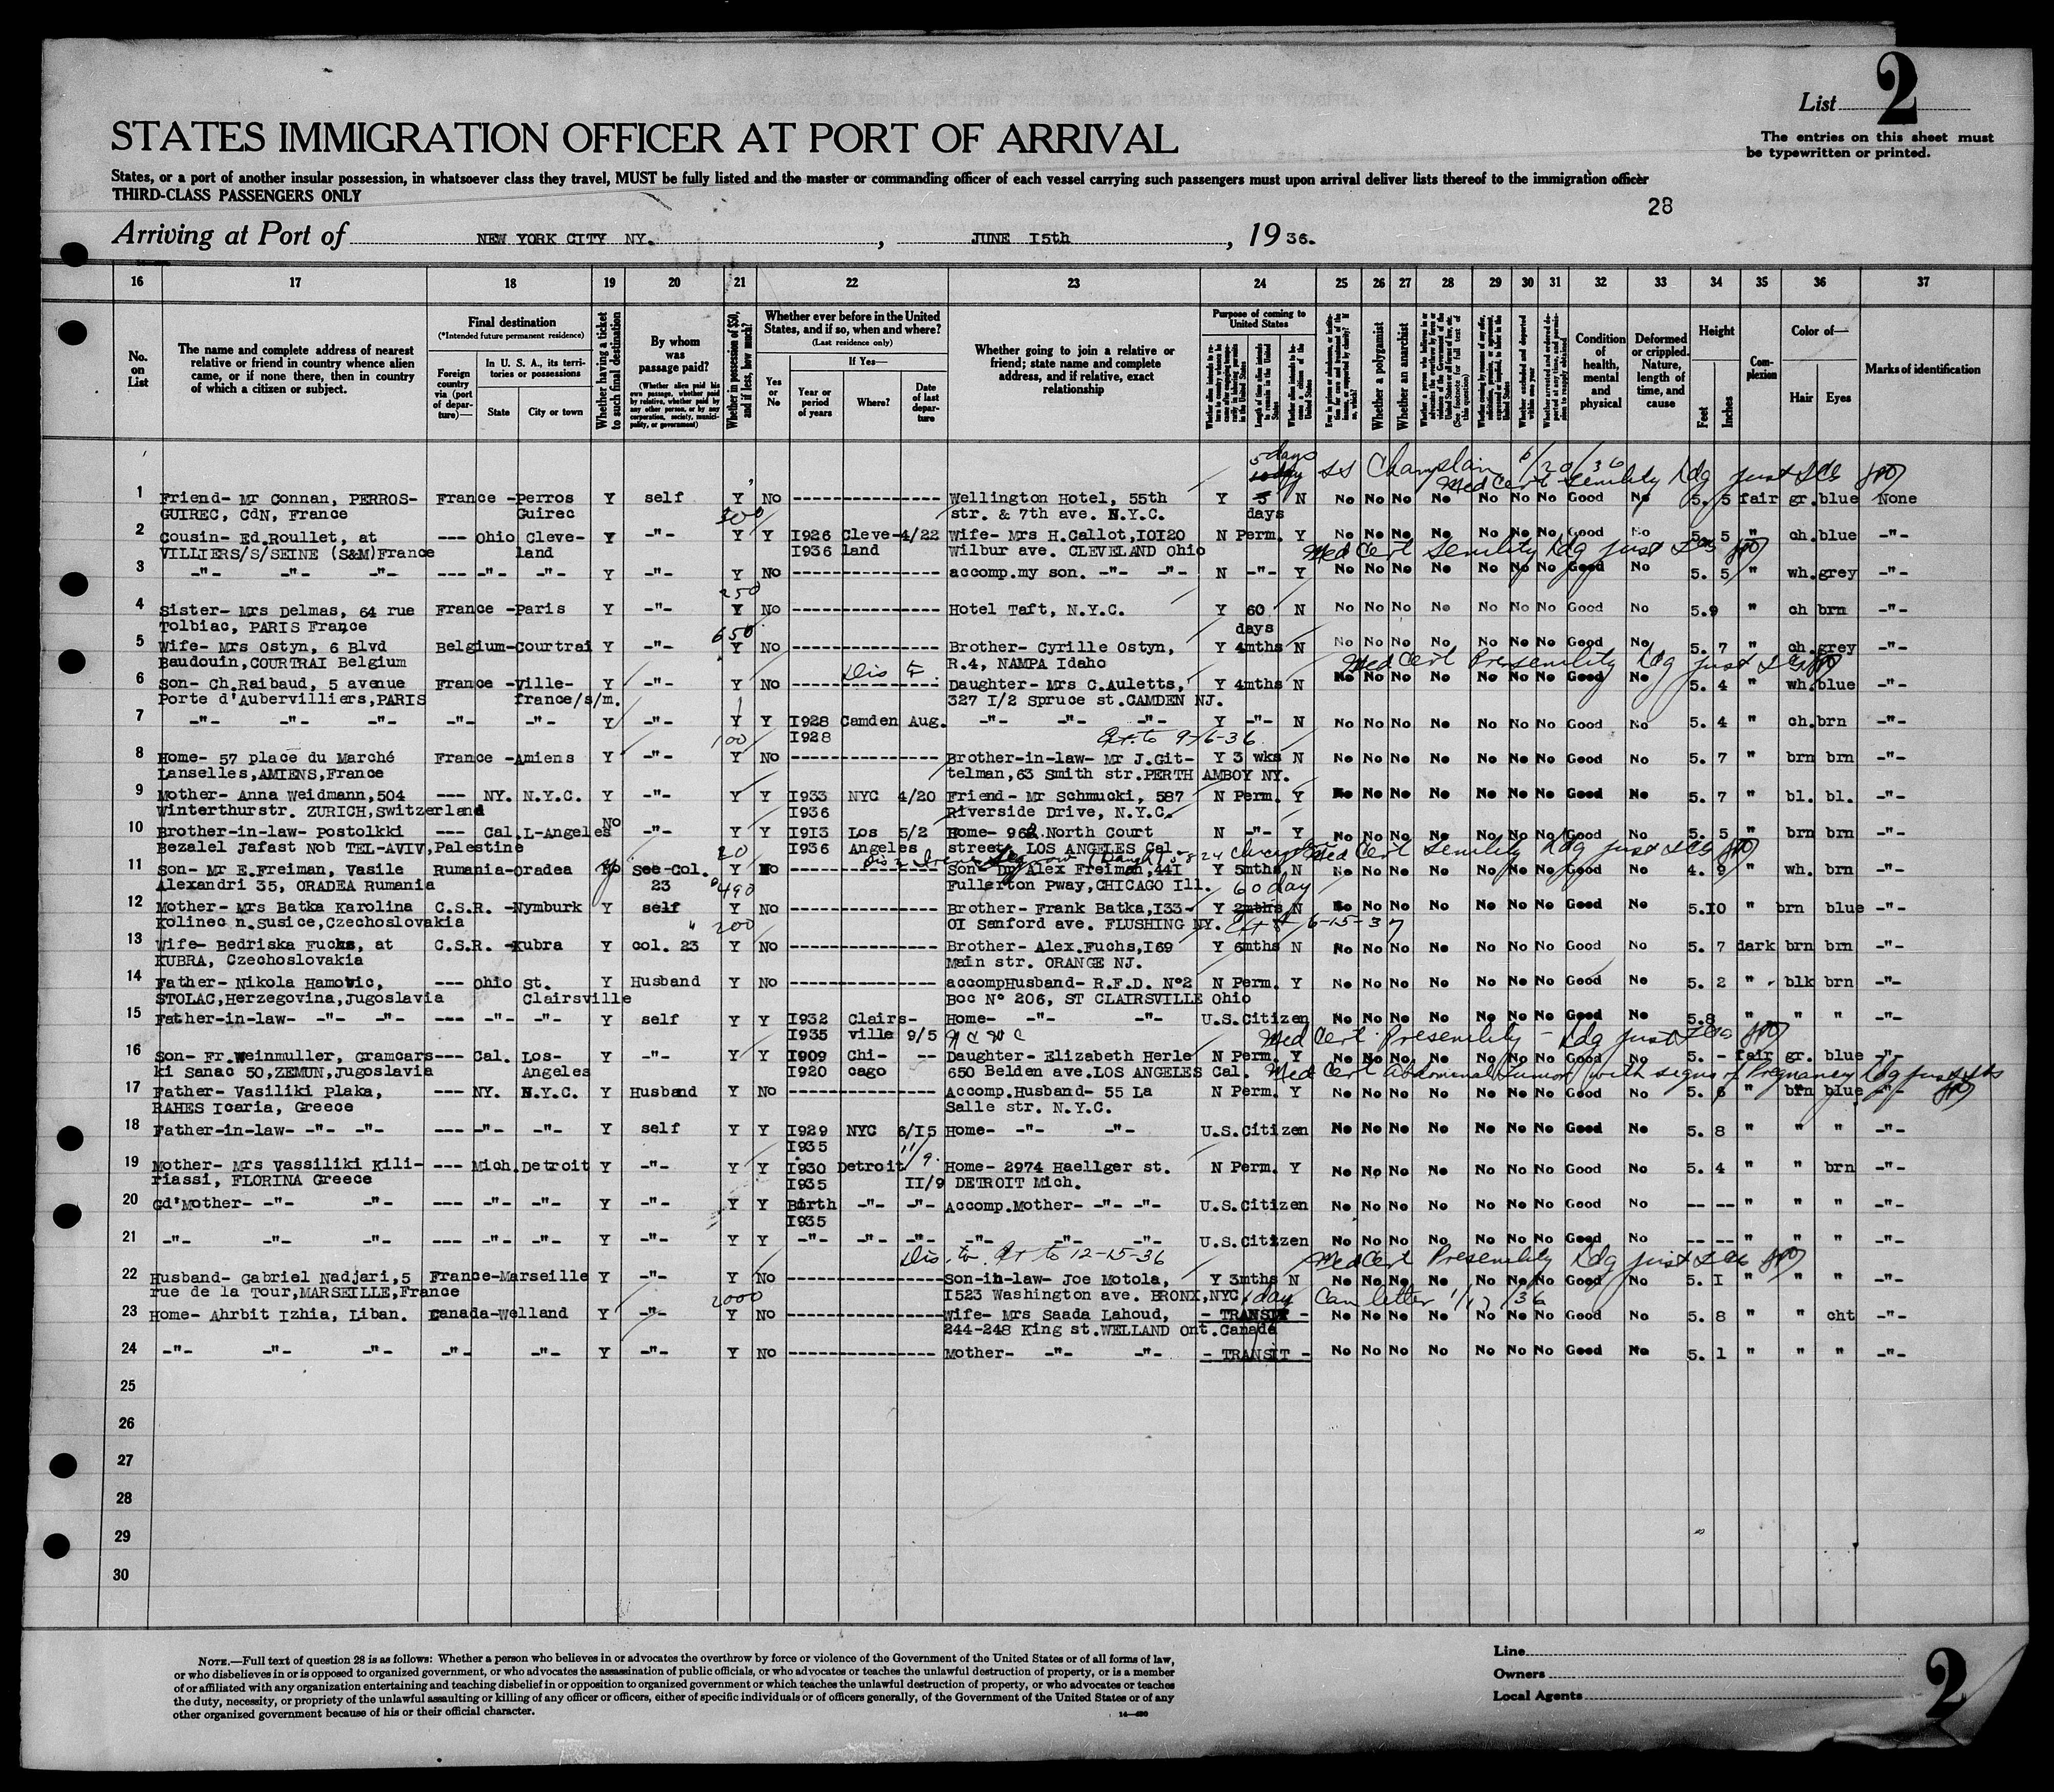 List 2
The entries on this sheet must
be typewritten or printed.
STATES IMMIGRATION OFFICER AT PORT OF ARRIVAL
States, or a port of another insular possession, in whatsoever class they travel, MUST be fully listed and the master or commanding officer of each vessel carrying such passengers must upon arrival deliver lists thereof to the immigration officer
THIRD-CLASS PASSENGERS ONLY
28
Arriving at Port of NEW YORK CITY NY. , JUNE I5th , 19 36.
16 17 18 19 20 21 22 23 24 25 26 27 28 29 30 31 32 33 34 35 36 37
No. on List
The name and complete address of nearest relative or friend in country whence alien came, or if none there, then in country of which a citizen or subject.
Final destination
(*Intended future permanent residence)
Foreign country via (port of departure)—
In U. S. A., its territories or possessions
State
City or town
Whether having a ticket to such final destination
By whom was passage paid?
(Whether alien paid his own passage, whether paid by relative, whether paid by any other person, or by any corporation, society, municipality, or government)
Whether in possession of $50, and if less, how much?
Whether ever before in the United States, and if so, when and where?
(Last residence only)
Yes or No
If Yes—
Year or period of years
Where?
Date of last departure
Whether going to join a relative or friend; state name and complete address, and if relative, exact relationship
Purpose of coming to United States
Whether a polygamist
Whether an anarchist
Condition of health, mental and physical
Deformed or crippled. Nature, length of time, and cause
Height
Feet
Inches
Complexion
Color of—
Hair
Eyes
Marks of identification
5 days SS Champlain 6/20/36
Med Cert Senility Ldg just
1 Friend- Mr Connan, PERROS- France -Perros Y self Y No --------------- Wellington Hotel, 55th Y 5 N No No No No No No No Good No 5. 5 fair gr. blue None
GUIREC, CdN, France Guirec 300 str. & 7th ave. N.Y.C. days
2 Cousin- Ed.Roullet, at --- Ohio Cleve- Y -"- Y Y I926 Cleve- 4/22 Wife- Mrs H.Callot,IOI20 N Perm. Y No No No No No No No Good No 5. 5 " ch. blue -"-
VILLIERS/S/SEINE (S&M)France land I936 land Wilbur ave. CLEVELAND Ohio Med Cert Senility Ldg just
3 -"- -"- -"- --- -"- -"- Y -"- Y No --------------- accomp.my son. -"- -"- N -"- Y No No No No No No No Good No 5. 5 " wh. grey -"-
250
4 Sister- Mrs Delmas, 64 rue France -Paris Y -"- Y No --------------- Hotel Taft, N.Y.C. Y 60 N No No No No No No No Good No 5.9 " ch brn -"-
Tolbiac, PARIS France 650 days
5 Wife- Mrs Ostyn, 6 Blvd Belgium-Courtrai Y -"- Y No --------------- Brother- Cyrille Ostyn, Y 4mths N No No No No No No No Good No 5. 7 " ch. grey -"-
Baudouin,COURTRAI Belgium R.4, NAMPA Idaho Med Cert Presenility Ldg just
6 Son- Ch.Raibaud, 5 avenue France -Ville- Y -"- Y No --------------- Daughter- Mrs C.Auletts, Y 4mths N No No No No No No No Good No 5. 4 " wh. blue -"-
Porte d'Aubervilliers,PARIS france/s/m. 327 I/2 Spruce st.CAMDEN NJ.
7 -"- -"- -"- -"- -"- Y -"- Y Y I928 Camden Aug. -"- -"- -"- Y -"- N No No No No No No No Good No 5. 4 " ch. brn -"-
100 I928 Ext. to 9-6-36
8 Home- 57 place du Marché France -Amiens Y -"- Y No --------------- Brother-in-law- Mr J.Git- Y 3 wks N No No No No No No No Good No 5. 7 " brn brn -"-
Lanselles,AMIENS,France telman,63 Smith str.PERTH AMBOY NY.
9 Mother- Anna Weidmann,504 --- NY. N.Y.C. Y -"- Y Y I933 NYC 4/20 Friend- Mr Schmucki, 587 N Perm. Y No No No No No No No Good No 5. 7 " bl. bl. -"-
Winterthurstr. ZURICH,Switzerland I936 Riverside Drive, N.Y.C.
10 Brother-in-law- Postolkki --- Cal. L-Angeles No -"- Y Y I9I3 Los 5/2 Home- 962 North Court N -"- Y No No No No No No No Good No 5. 5 " brn brn -"-
Bezalel Jafast Nob TEL-AVIV,Palestine 20 I936 Angeles street, LOS ANGELES Cal. Med Cert Senility Ldg just
11 Son- Mr E.Freiman, Vasile Rumania-Oradea No See Col. Y No Son- Dr Alex Freiman,44I Y 5mths N No No No No No No No Good No 4. 9 " wh. brn -"-
Alexandri 35, ORADEA Rumania 23 490 Fullerton Pway,CHICAGO Ill. 60 day
12 Mother- Mrs Batka Karolina C.S.R. -Nymburk Y self Y No --------------- Brother- Frank Batka,I33- Y 2mths N No No No No No No No Good No 5.IO " brn blue -"-
Kolinec n.Susice,Czechoslovakia 200 OI Sanford ave. FLUSHING NY. Ext to 6-15-37
13 Wife- Bedriska Fuchs, at C.S.R. -Kubra Y col. 23 Y No --------------- Brother- Alex.Fuchs,I69 Y 6mths N No No No No No No No Good No 5. 7 dark brn brn -"-
KUBRA, Czechoslovakia Main str. ORANGE NJ.
14 Father- Nikola Hamovic, --- Ohio St. Y Husband Y No --------------- accompHusband- R.F.D. N°2 N Perm. Y No No No No No No No Good No 5. 2 " blk brn -"-
STOLAC,Herzegovina,Jugoslavia Clairsville Boc N° 206, ST CLAIRSVILLE Ohio
15 Father-in-law- -"- -"- --- -"- -"- Y self Y Y I932 Clairs- Home- -"- -"- U.S.Citizen No No No No No No No Good No 5.8 " " " -"-
I935 ville 9/5 Med Cert Presenility - Ldg just
16 Son- Fr.Weinmuller, Gramcars --- Cal. Los- Y -"- Y Y I909 Chi- -- Daughter- Elizabeth Herle N Perm. Y No No No No No No No Good No 5. - fair gr. blue -"-
ki Sanac 50,ZEMUN,Jugoslavia Angeles I920 cago 650 Belden ave.LOS ANGELES Cal. Med Cert Abdominal Tumor with signs of Pregnancy Ldg just
17 Father- Vasiliki Plaka, --- NY. N.Y.C. Y Husband Y No --------------- Accomp.Husband- 55 La N Perm. Y No No No No No No No Good No 5. 6 " brn blue -"-
RAHES Icaria, Greece Salle str. N.Y.C.
18 Father-in-law- -"- -"- --- -"- -"- Y self Y Y I929 NYC 6/I5 Home- -"- -"- U.S.Citizen No No No No No No No Good No 5. 8 " " " -"-
I935 11/9
19 Mother- Mrs Vassiliki Kili- --- Mich. Detroit Y -"- Y Y I930 Detroit Home- 2974 Haellger st. N Perm. Y No No No No No No No Good No 5. 4 " " brn -"-
riassi, FLORINA Greece I935 II/9 DETROIT Mich.
20 Gd'Mother- -"- -"- --- -"- -"- Y -"- Y Y Birth -"- -"- Accomp.Mother- -"- -"- U.S.Citizen No No No No No No No Good No -- -- " " " -"-
I935
21 -"- -"- -"- --- -"- -"- Y -"- Y Y -"- -"- -"- -"- -"- -"- U.S.Citizen No No No No No No No Good No -- -- " " " -"-
Ext to 12-15-36 Med Cert Presenility Ldg just
22 Husband- Gabriel Nadjari,5 France-Marseille Y -"- Y No --------------- Son-in-law- Joe Motola, Y 3mths N No No No No No No No Good No 5. I " " " -"-
rue de la Tour,MARSEILLE,France 2000 I523 Washington ave. BRONX,NYC. 1 day Can letter 1/17/36
23 Home- Ahrbit Izhia, Liban. Canada-Welland Y -"- Y No --------------- Wife- Mrs Saada Lahoud, - TRANSIT - No No No No No No No Good No 5. 8 " " cht -"-
244-248 King st.WELLAND Ont.Canada
24 -"- -"- -"- -"- -"- Y -"- Y No --------------- Mother- -"- -"- - TRANSIT - No No No No No No No Good No 5. 1 " " " -"-
25
26
27
28
29
30
NOTE.—Full text of question 28 is as follows: Whether a person who believes in or advocates the overthrow by force or violence of the Government of the United States or of all forms of law,
or who disbelieves in or is opposed to organized government, or who advocates the assassination of public officials, or who advocates or teaches the unlawful destruction of property, or is a member
of or affiliated with any organization entertaining and teaching disbelief in or opposition to organized government or which teaches the unlawful destruction of property, or who advocates or teaches
the duty, necessity, or propriety of the unlawful assaulting or killing of any officer or officers, either of specific individuals or of officers generally, of the Government of the United States or of any
other organized government because of his or their official character.
14—490
Line
Owners
Local Agents
2